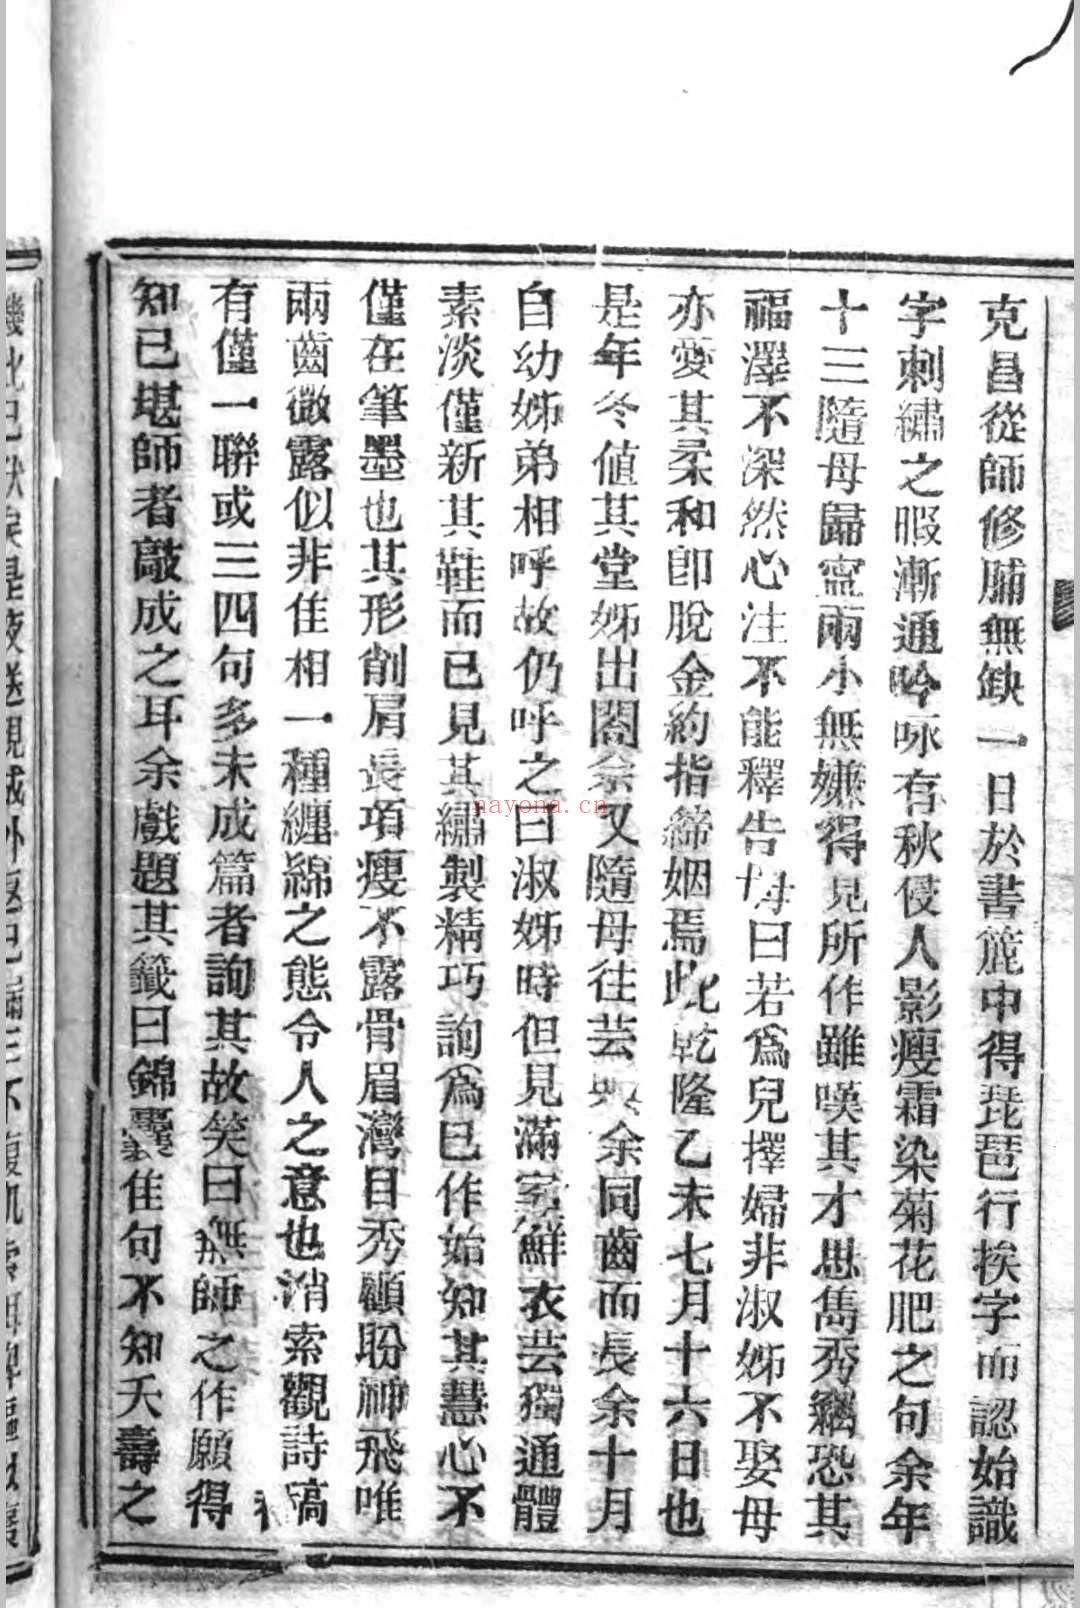 克昌從師修脯無缺一日於書簏中得琵琶行挨字而認始識
字刺繡之暇漸通吟咏有秋侵人影瘦霜染菊花肥之句余年
十三隨母歸寧兩小無嫌得見所作雖嘆其才思雋秀竊恐其
福澤不深然心注不能釋告母曰若爲兒擇婦非淑姊不娶母
亦愛其柔和卽脫金約指締姻焉此乾隆乙未七月十六日也
是年冬値其堂姊出閣余又隨母往芸與余同齒而長余十月
自幼姊弟相呼故仍呼之曰淑姊時但見滿室鮮衣芸獨通體
素淡僅新其鞋而已見其繡製精巧詢爲己作始知其慧心不
僅在筆墨也其形削肩長項瘦不露骨眉灣目秀顧盼神飛唯
兩齒微露似非佳相一種纏綿之態令人之意也消索觀詩稿
有僅一聯或三四句多未成篇者詢其故笑曰無師之作願得
知己堪師者敲成之耳余戲題其籤曰錦囊佳句不知夭壽之
nayona.cn